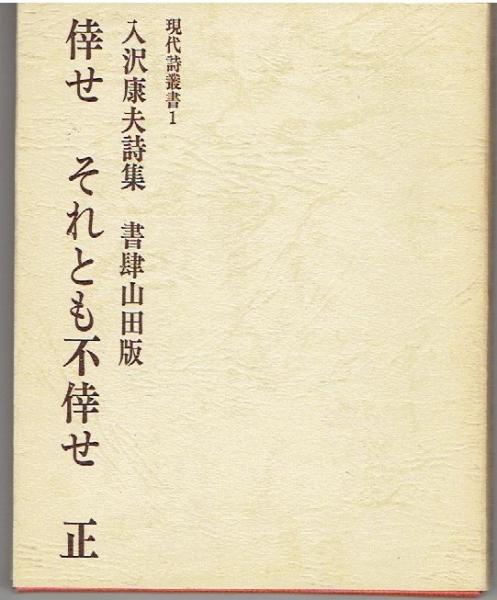 現代詩叢書1
入沢康夫詩集 書肆山田版
倖せ それとも不倖せ 正